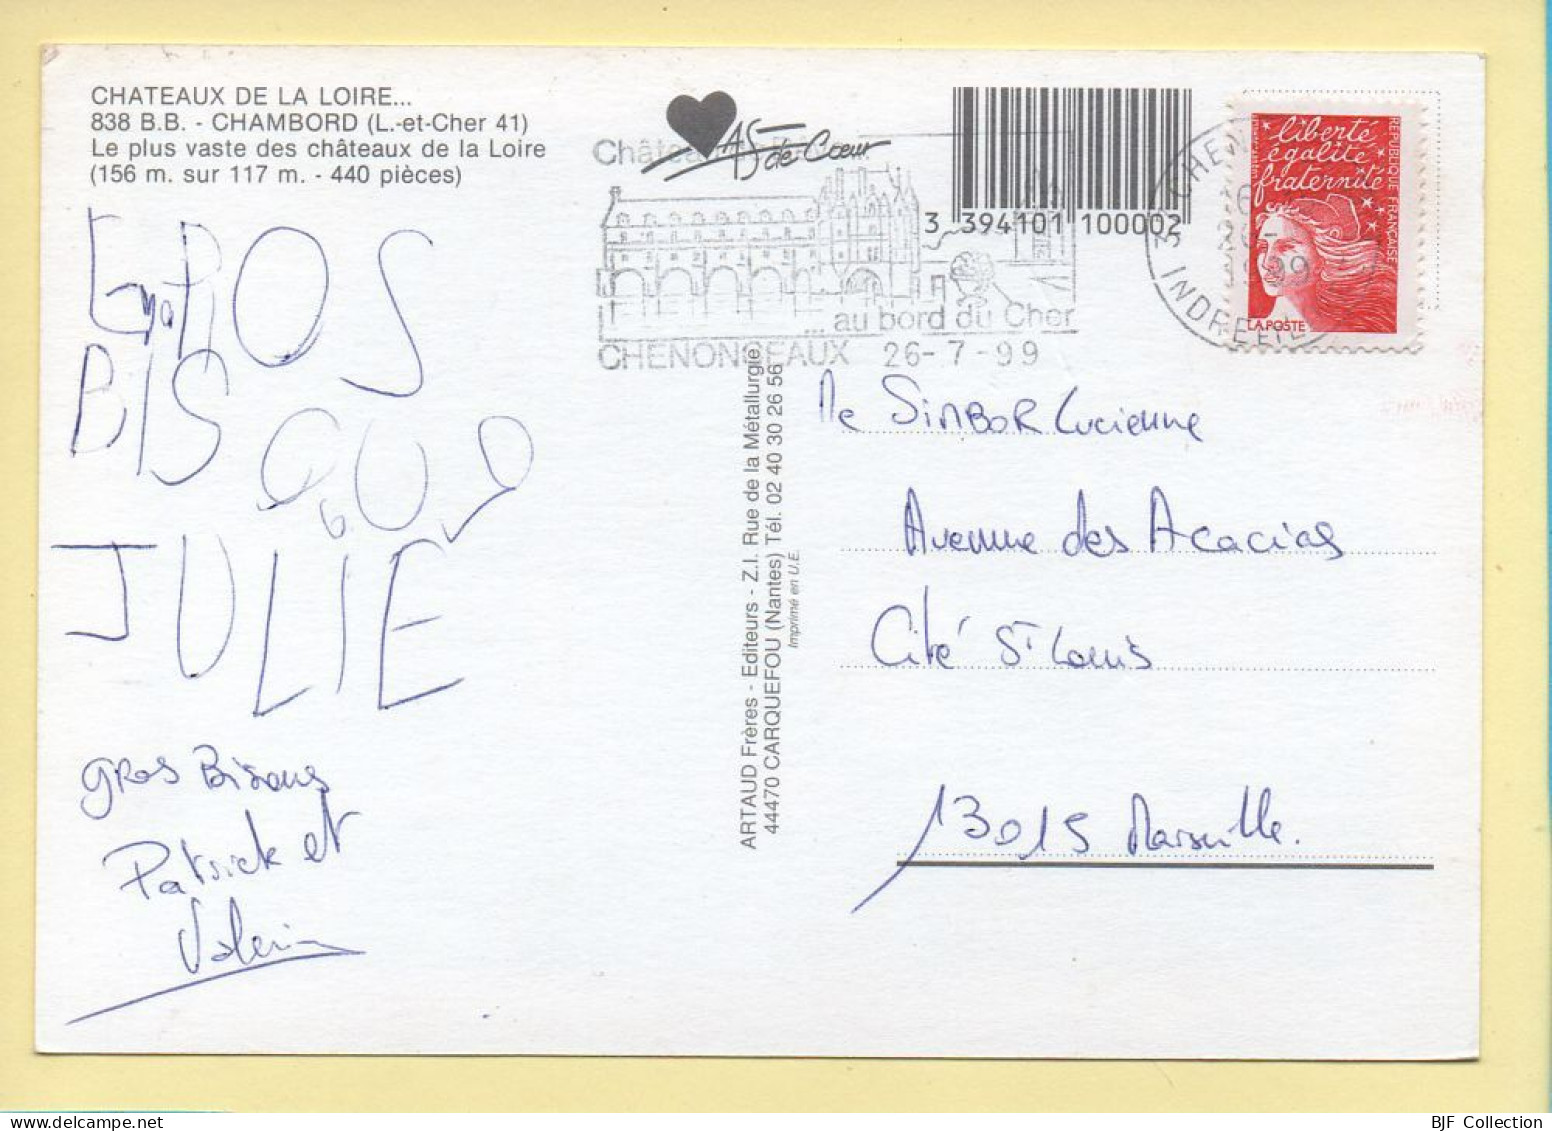 CHATEAUX DE LA LOIRE...
838 B.B. - CHAMBORD (L.-et-Cher 41)
Le plus vaste des châteaux de la Loire
(156 m. sur 117 m. - 440 pièces)
AS de Cœur
3 394101 100002
... au bord du Cher
CHENONCEAUX 26-7-99
INDRE ET L
1999
liberté
égalité
fraternité
RÉPUBLIQUE FRANÇAISE
LA POSTE
BIS
JULIE
gros Bisous
Patrick et
Valérie
ARTAUD Frères - Editeurs - Z.I. Rue de la Métallurgie
44470 CARQUEFOU (Nantes) Tél. 02 40 30 26 56
Imprimé en U.E.
Me SIMBOR Lucienne
Avenue des Acacias
Cité St Louis
13015 Marseille.
BJF Collection